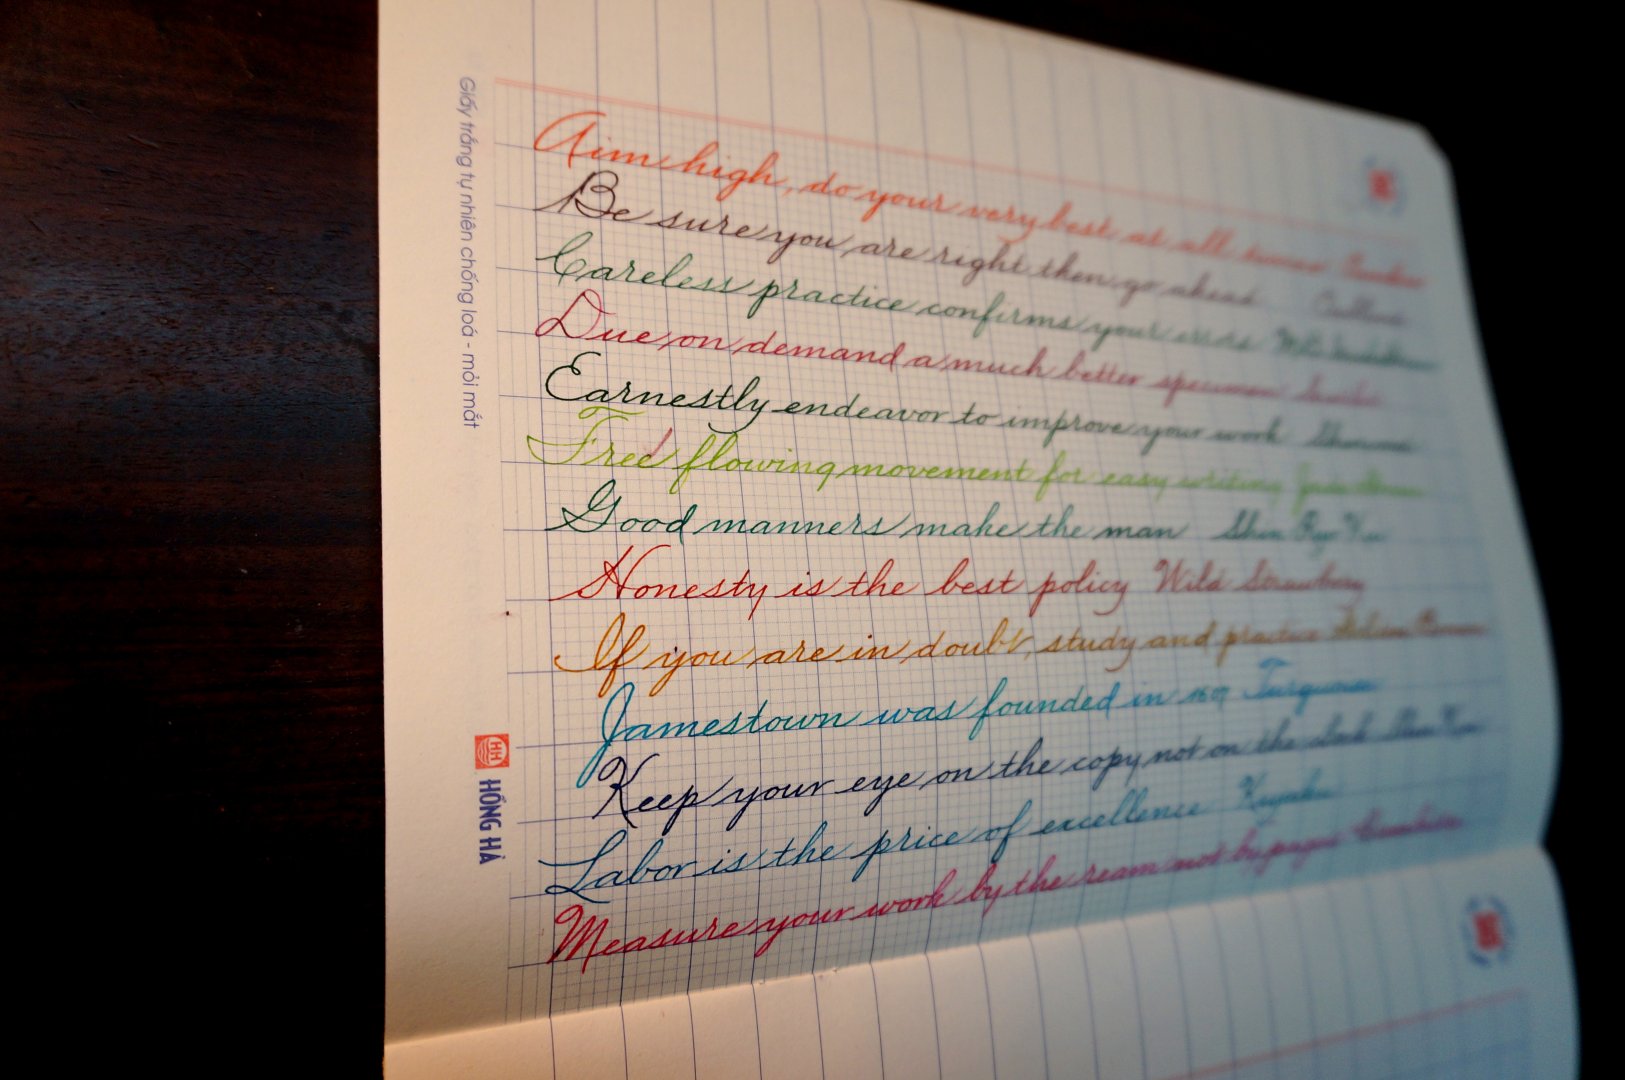 Giấy trắng tự nhiên chống loá - mỏi mắt
Aim high, do your very best at all times
Be sure you are right then go ahead
Careless practice confirms your errors
Due on demand a much better specimen
Earnestly endeavor to improve your work
Free flowing movement for easy writing
Good manners make the man Shin Ryo Ku
Honesty is the best policy Wild Strawberry
If you are in doubt, study and practice
Jamestown was founded in 1607 Turquoise
Keep your eye on the copy not on the clock Shin Kai
Labor is the price of excellence Kujaku
Measure your work by the ream not by pages
HH
HỒNG HÀ